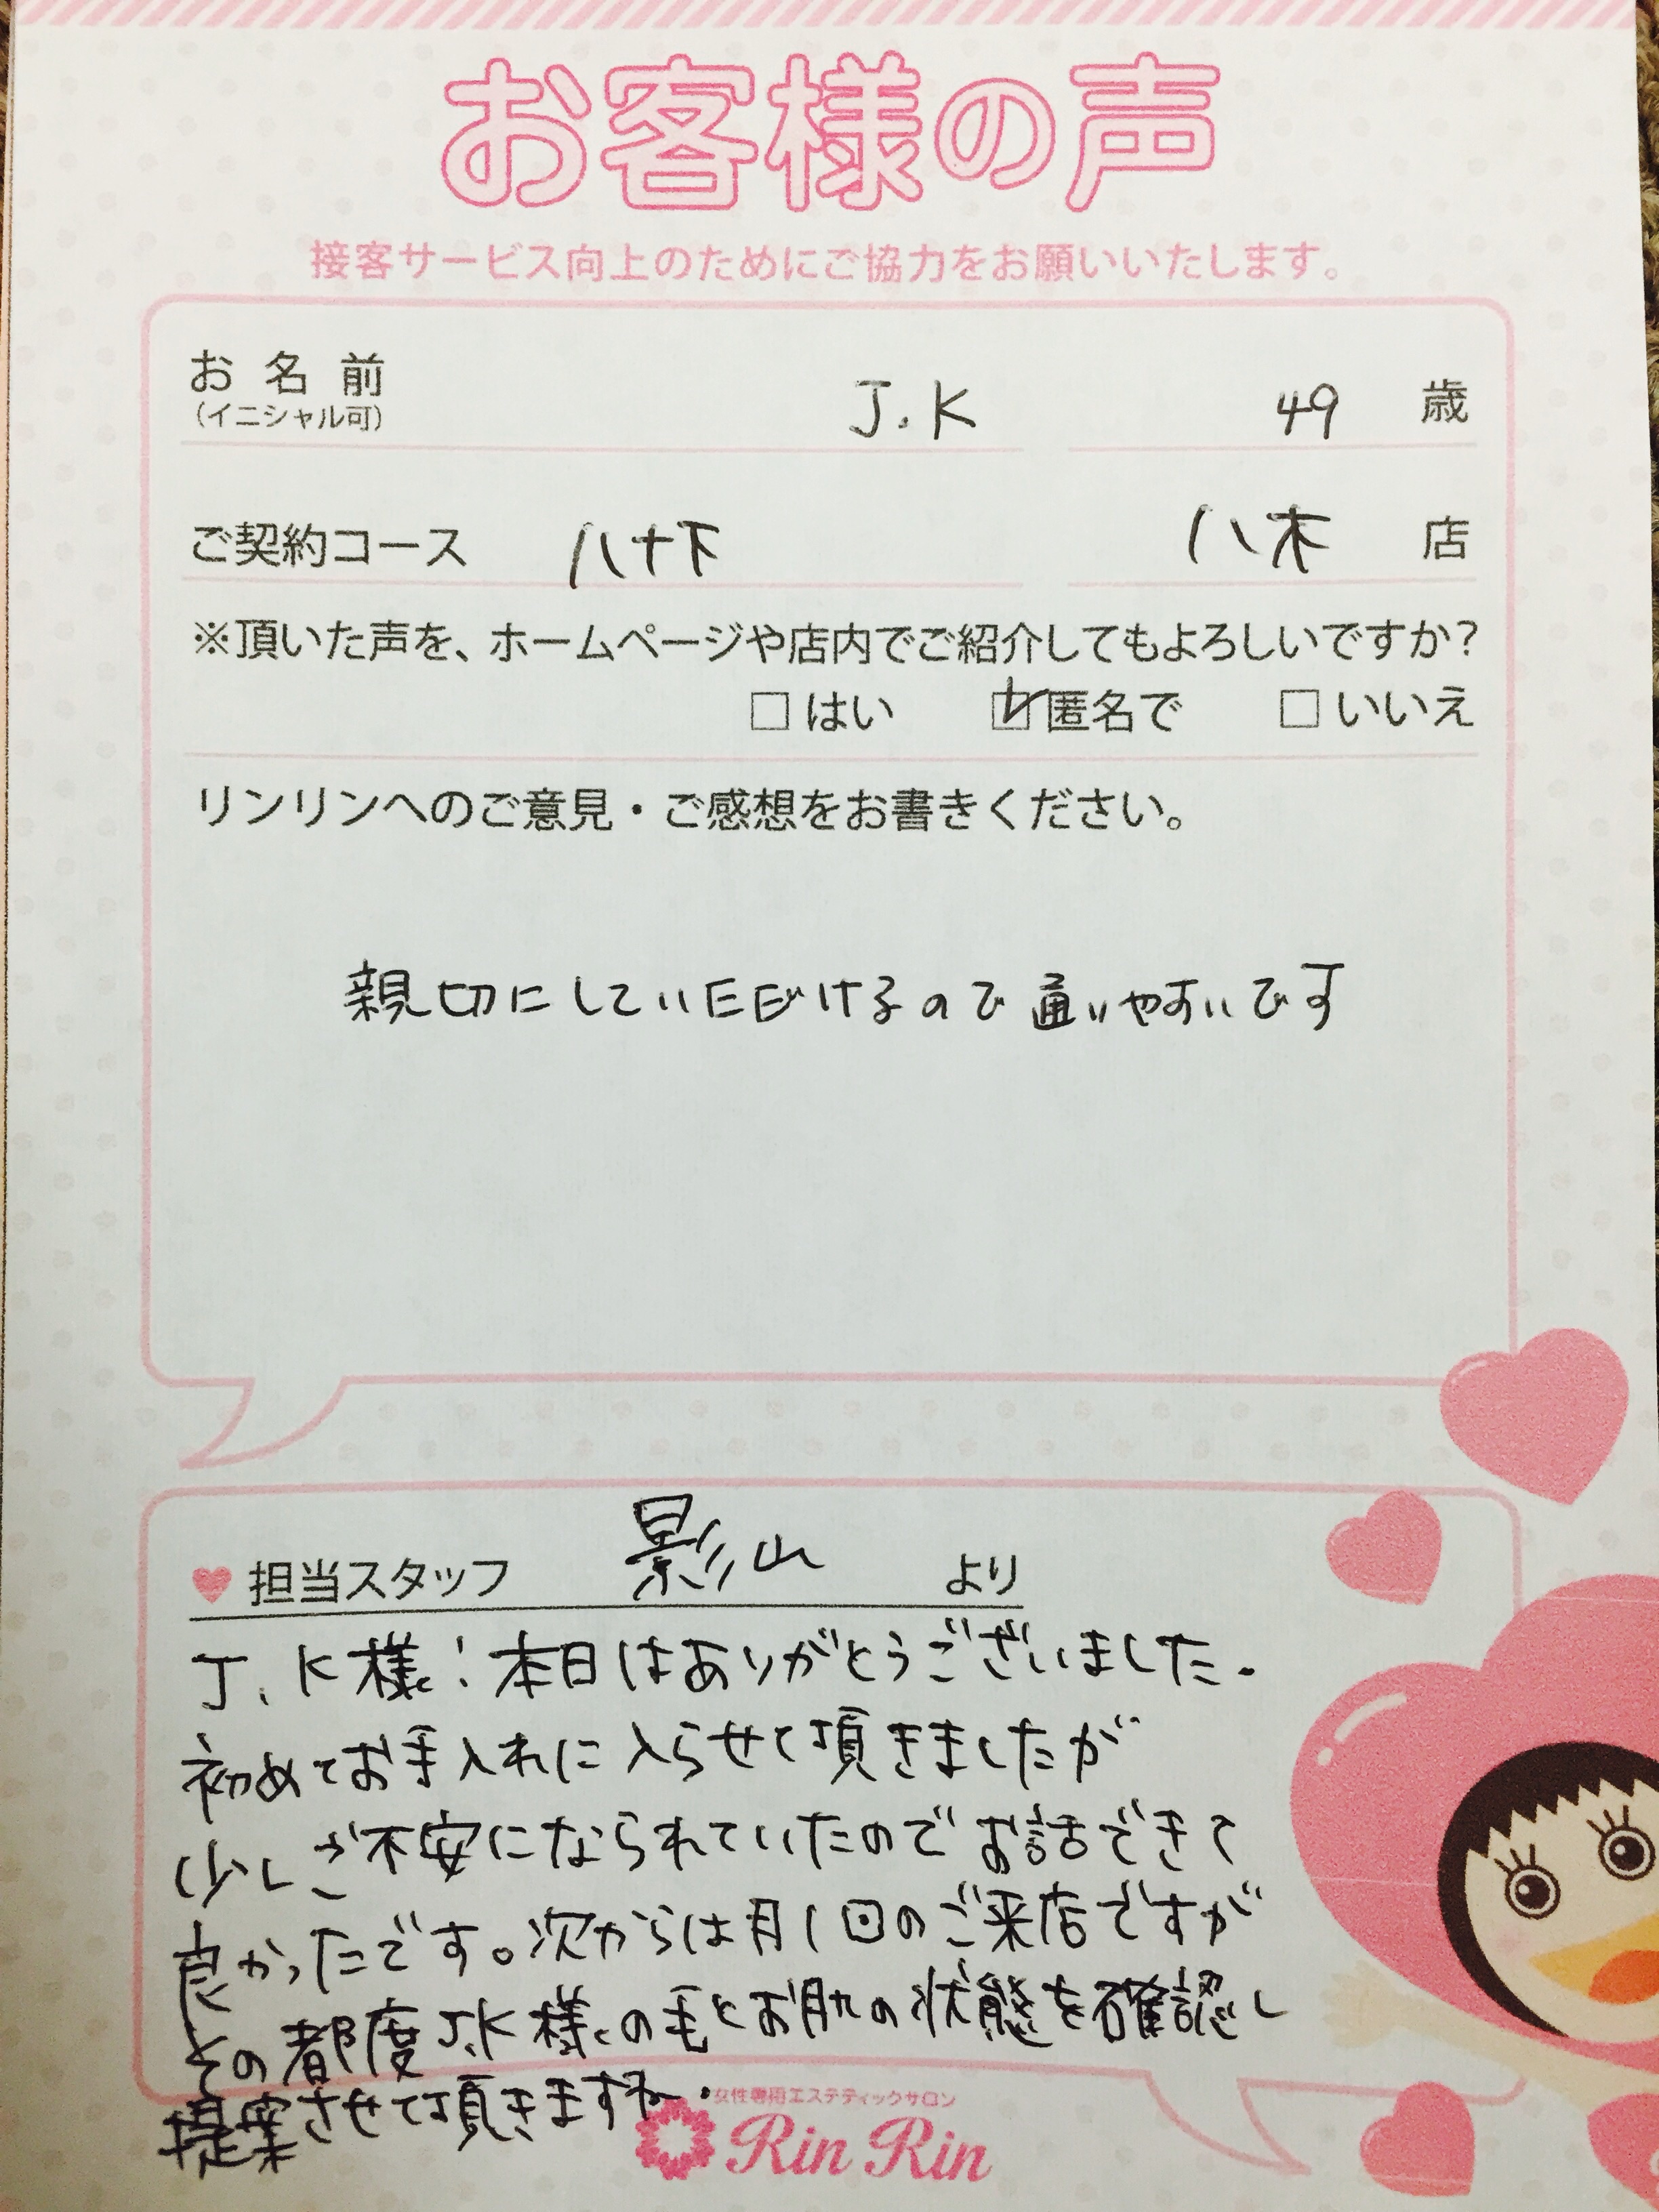 お客様の声
接客サービス向上のためにご協力をお願いいたします。
お名前 J.K 49 歳
(イニシャル可)
ご契約コース 八木 店
※頂いた声を、ホームページや店内でご紹介してもよろしいですか?
□はい ☑匿名で □いいえ
リンリンへのご意見・ご感想をお書きください。
親切にしていただけるので通いやすいです
♥担当スタッフ 影山 より
J.K様!本日はありがとうございました.
初めてお手入れに入らせて頂きましたが
少しご不安になられていたのでお話できて
良かったです。次からは月1回のご来店ですが
その都度J.K様の毛とお肌の状態を確認し
提案させて頂きますね.
女性専用エステティックサロン
Rin Rin